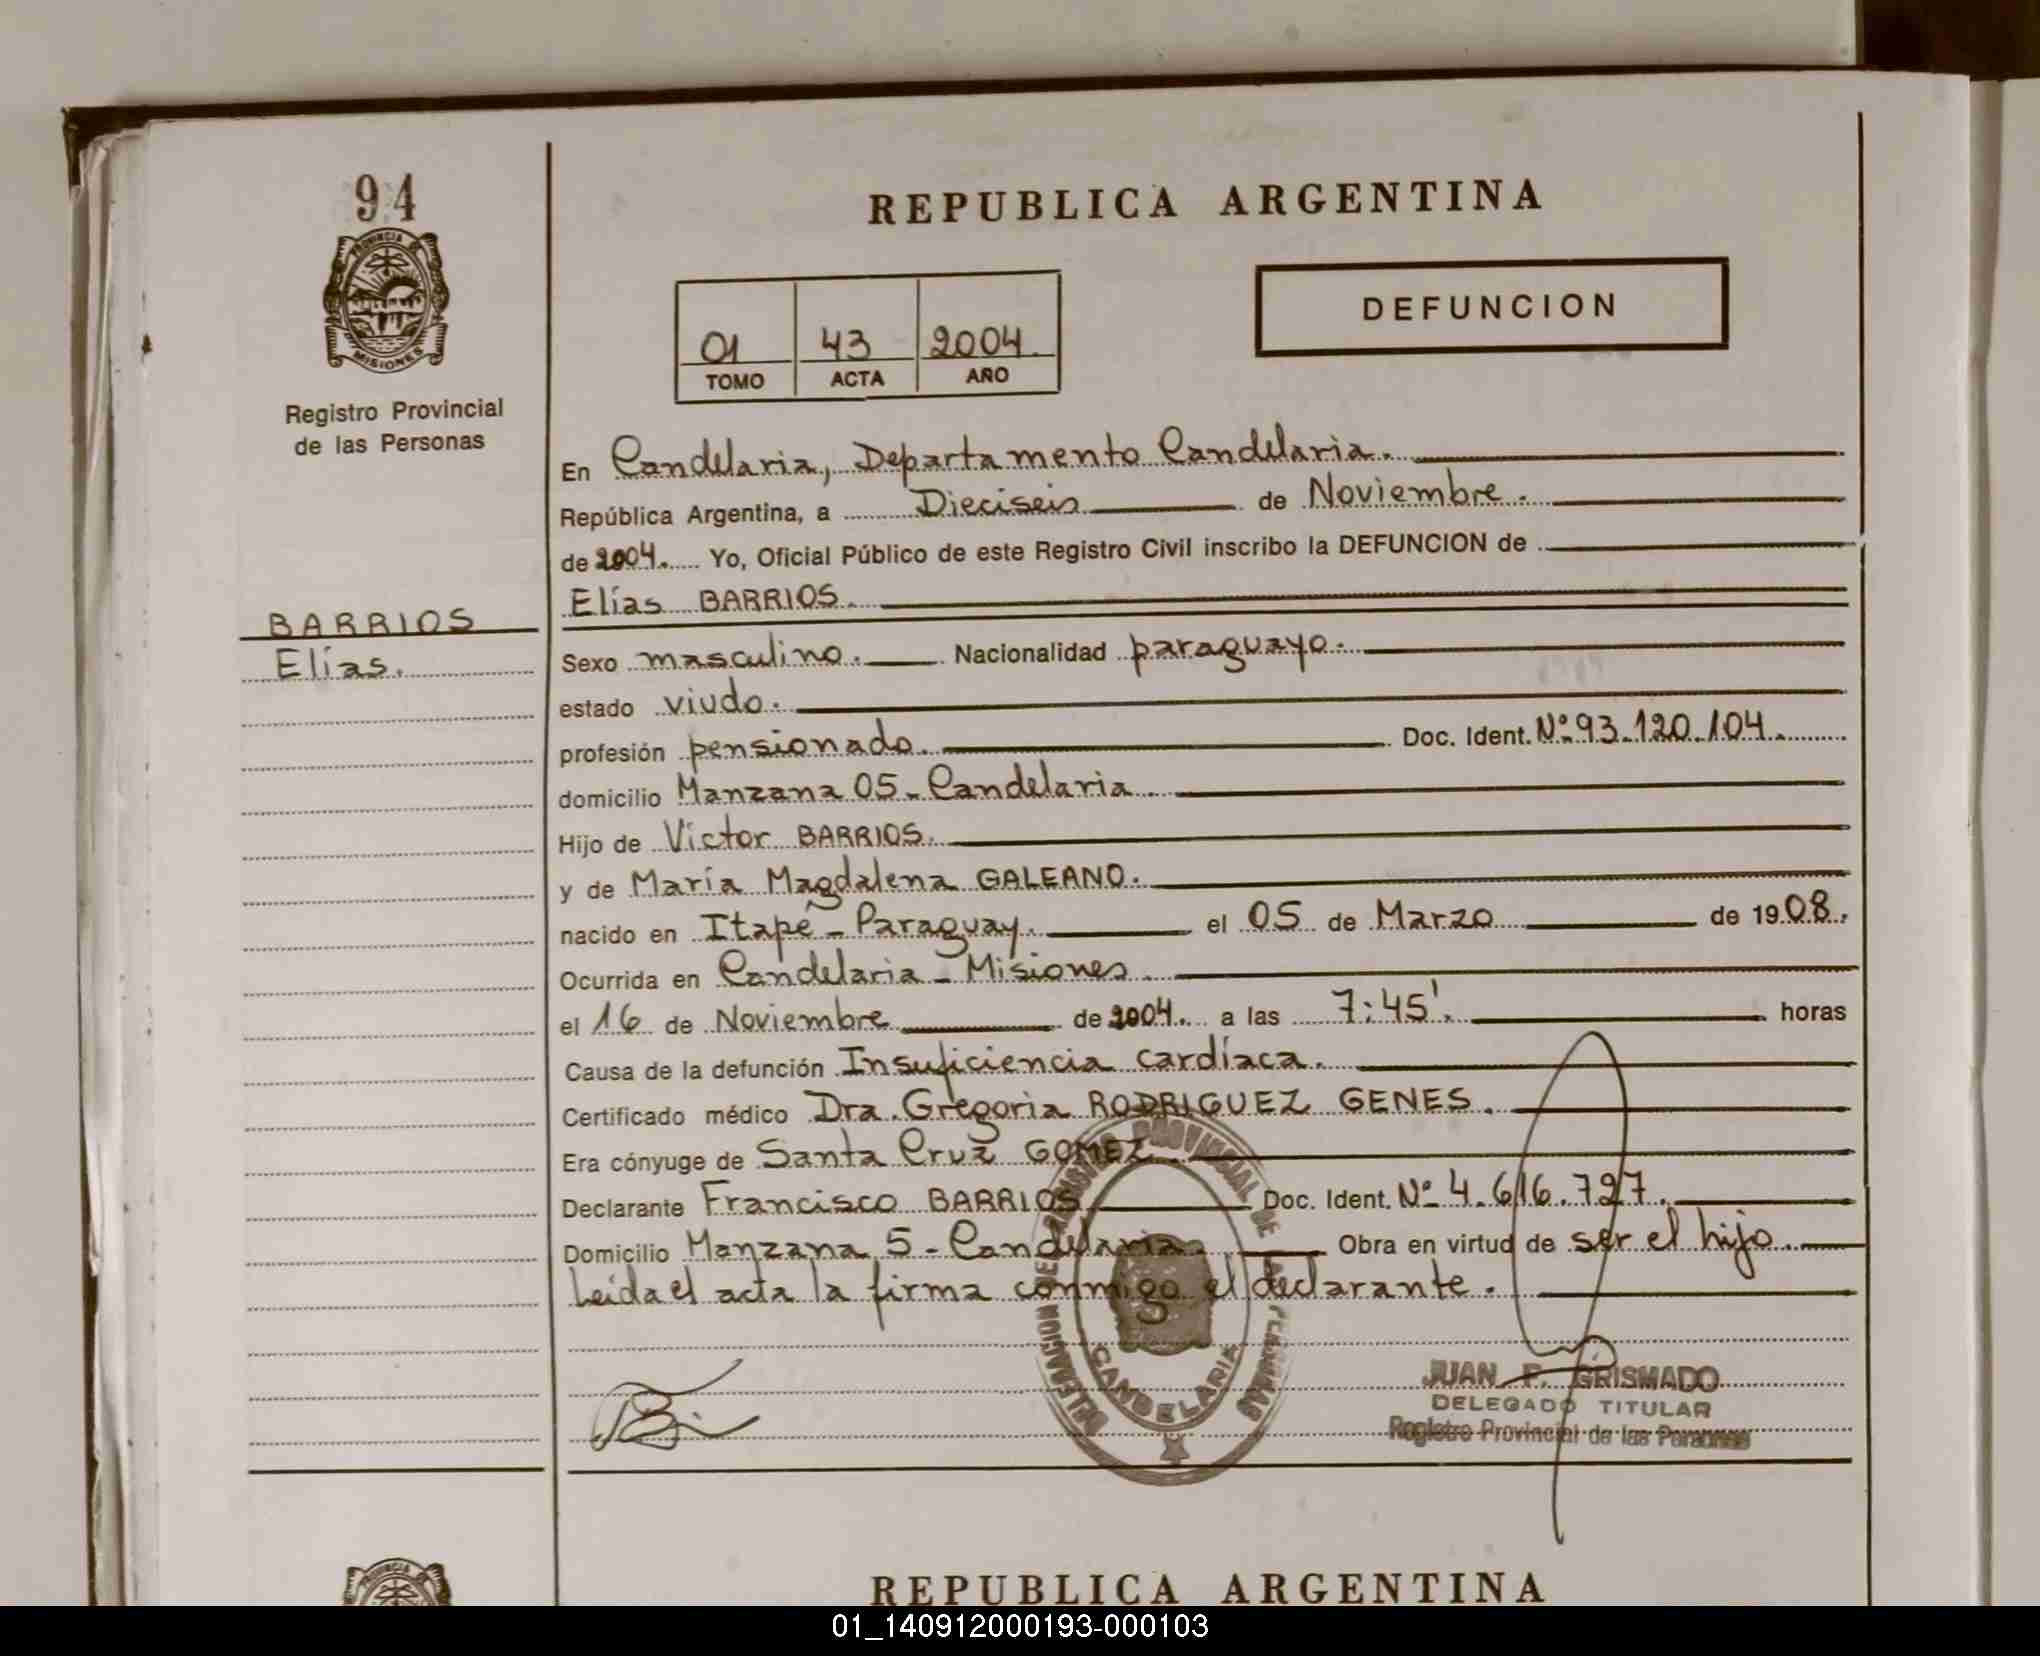 94
PROVINCIA DE
MISIONES
Registro Provincial
de las Personas
BARRIOS
Elías.
REPUBLICA ARGENTINA
01 43 2004.
TOMO ACTA AÑO
DEFUNCION
En Candelaria, Departamento Candelaria.
República Argentina, a Dieciseis de Noviembre.
de 2004. Yo, Oficial Público de este Registro Civil inscribo la DEFUNCION de
Elías BARRIOS.
Sexo masculino. Nacionalidad paraguayo.
estado viudo.
profesión pensionado. Doc. Ident. Nº 93.120.104.
domicilio Manzana 05 - Candelaria.
Hijo de Víctor BARRIOS.
y de María Magdalena GALEANO.
nacido en Itapé - Paraguay. el 05 de Marzo de 1908.
Ocurrida en Candelaria - Misiones.
el 16 de Noviembre de 2004. a las 7:45'. horas
Causa de la defunción Insuficiencia cardíaca.
Certificado médico Dra. Gregoria RODRIGUEZ GENES.
Era cónyuge de Santa Cruz GOMEZ.
Declarante Francisco BARRIOS Doc. Ident. Nº 4.616.727.
Domicilio Manzana 5 - Candelaria. Obra en virtud de ser el hijo.
Leída el acta la firma conmigo el declarante.
DELEGACION CANDELARIA
JUAN F. GRISMADO
DELEGADO TITULAR
Registro Provincial de las Personas
PROVINCIA DE
REPUBLICA ARGENTINA
01_140912000193-000103